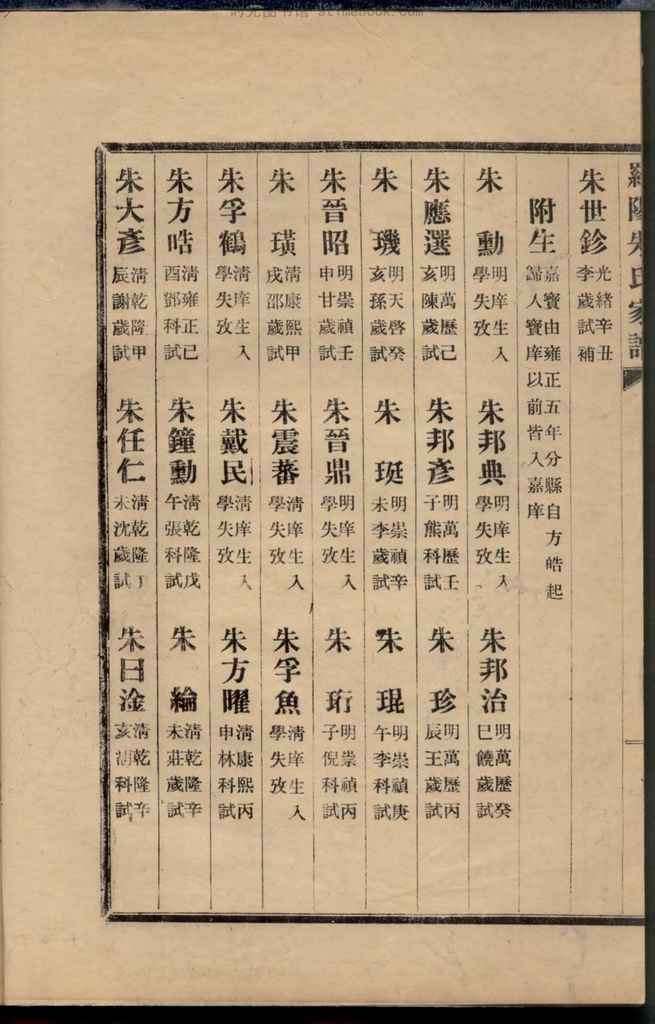 羅陽朱氏家譜
朱世鉁 光緒辛丑李歲試補
附生 嘉寶由雍正五年分縣自方皓起歸人寶庠以前皆入嘉庠
朱勳 明庠生入學失攷
朱邦典 明庠生入學失攷
朱邦治 明萬歷癸巳饒歲試
朱應選 明萬歷己亥陳歲試
朱邦彥 明萬歷壬子熊科試
朱珍 明萬歷丙辰王歲試
朱璣 明天啓癸亥孫歲試
朱珽 明崇禎辛未李歲試
朱琨 明崇禎庚午李科試
朱晉昭 明崇禎壬申甘歲試
朱晉鼎 明庠生入學失攷
朱珩 明崇禎丙子倪科試
朱璜 清康熙甲戌邵歲試
朱震蕃 清庠生入學失攷
朱孚魚 清庠生入學失攷
朱孚鶴 清庠生入學失攷
朱戴民 清庠生入學失攷
朱方曜 清康熙丙申林科試
朱方晧 清雍正己酉鄧科試
朱鐘勳 清乾隆戊午張科試
朱綸 清乾隆辛未莊歲試
朱大彥 清乾隆甲辰謝歲試
朱任仁 清乾隆丁未沈歲試
朱日淦 清乾隆辛亥胡科試